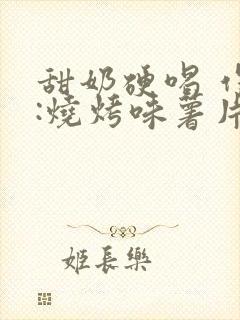 甜奶硬唱
:燒烤味薯片
姬長樂